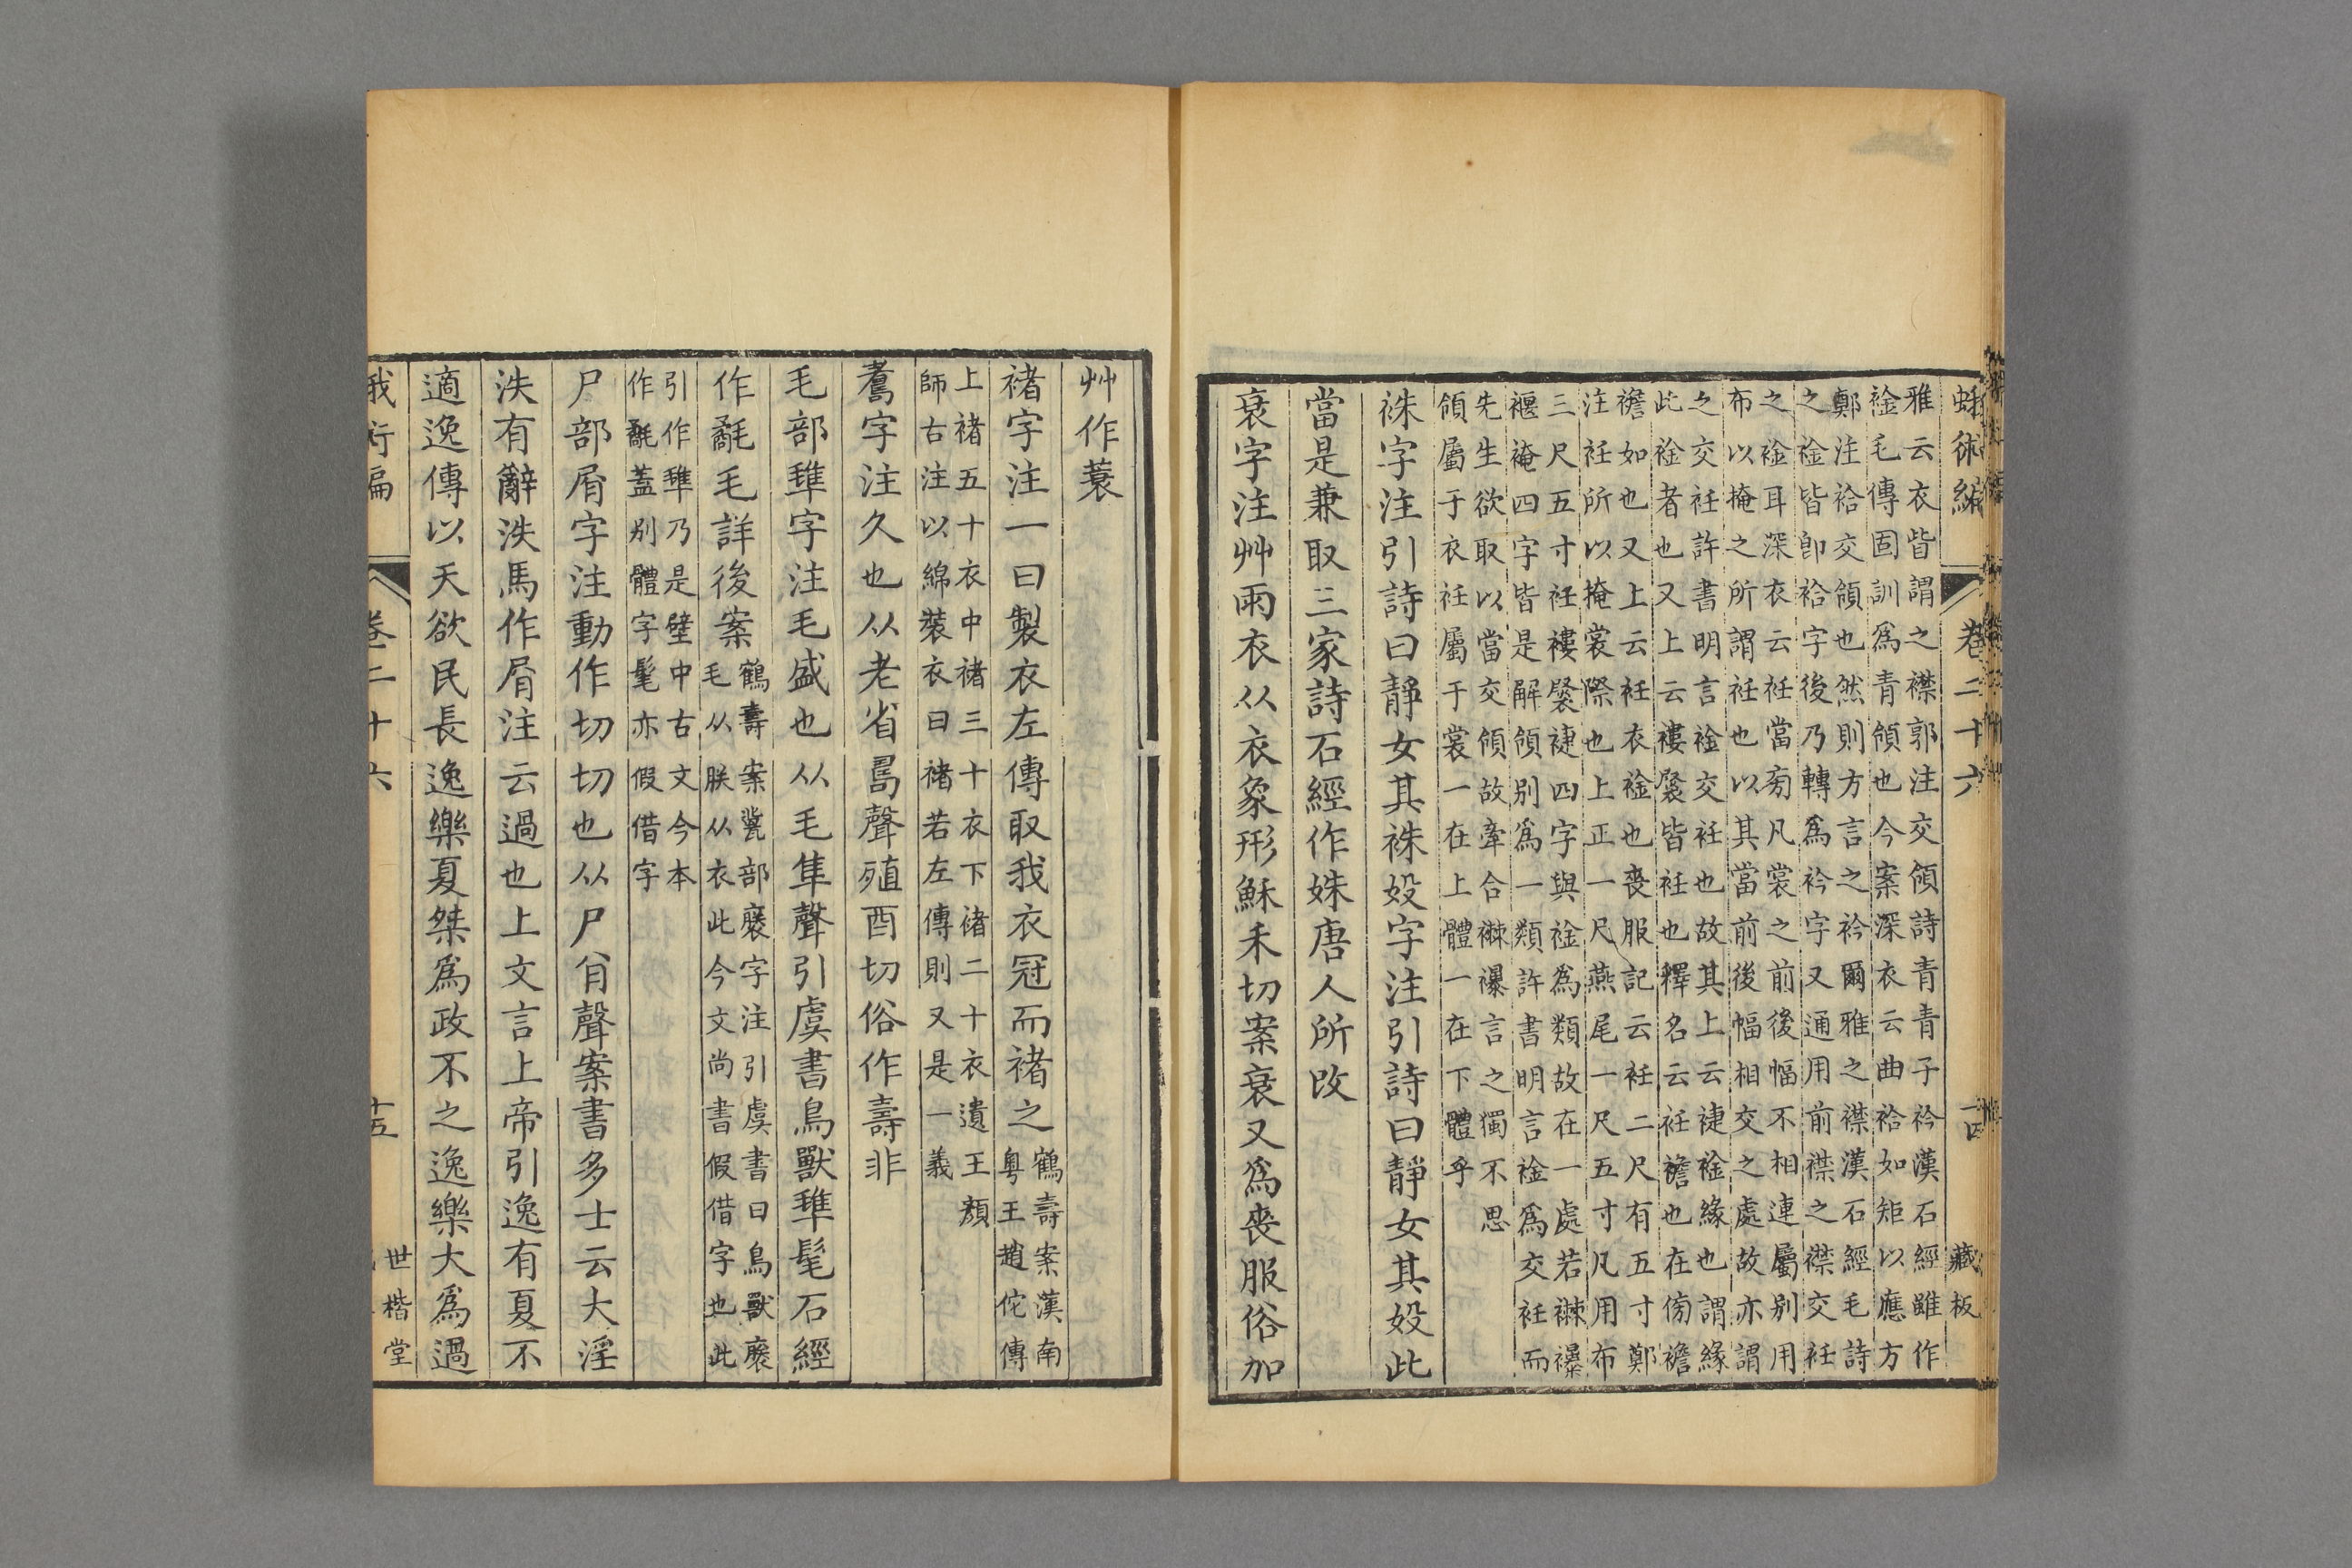 蛾術編 卷二十六 藏板
雅云衣皆謂之襟郭注交領詩青青子衿漢石經雖作
䘳毛傳固訓爲青領也今案深衣云曲袷如矩以應方
鄭注袷交領也然則方言之衿爾雅之襟漢石經毛詩
之䘳皆卽袷字後乃轉爲衿字又通用前襟之襟交衽
之䘳耳深衣云衽當旁凡裳之前後幅不相連屬別用
布以掩之所謂衽也以其當前後幅相交之處故亦謂
之交衽許書明言䘳交衽也故其上云褄䘳緣也謂緣
此䘳者也又上云褸褽皆衽也釋名云衽襜也在傍襜
襜如也又上云衽衣䘳也喪服記云衽二尺有五寸鄭
注衽所以掩裳際也上正一尺燕尾一尺五寸凡用布
三尺五寸衽褸褽褄四字與䘳爲類故在一處若襋襮
褗裺四字皆是解領別爲一類許書明言䘳爲交衽而
先生欲取以當交領故牽合襋襮言之獨不思
領屬于衣衽屬于裳一在上體一在下體乎
袾字注引詩曰靜女其袾姝字注引詩曰靜女其姝此
當是兼取三家詩石經作姝唐人所改
衰字注艸雨衣从衣象形穌禾切案衰又爲喪服俗加
艸作蓑
褚字注一曰製衣左傳取我衣冠而褚之鶴壽案漢南
粤王趙佗傳
上褚五十衣中褚三十衣下褚二十衣遺王顏
師古注以綿裝衣曰褚若左傳則又是一義
耋字注久也从老省𠷎聲殖酉切俗作壽非
毛部𣯍字注毛盛也从毛隼聲引虞書鳥獸𣯍髦石經
作氄毛詳後案鶴壽案㼱部襃字注引虞書曰鳥獸襃
毛从朕从衣此今文尚書假借字也此
引作𣯍乃是壁中古文今本
作氄蓋別體字髦亦假借字
尸部屑字注動作切切也从尸㕯聲案書多士云大淫
泆有辭泆馬作屑注云過也上文言上帝引逸有夏不
適逸傳以天欲民長逸樂夏桀爲政不之逸樂大爲過
卷二十六 十五 世楷堂